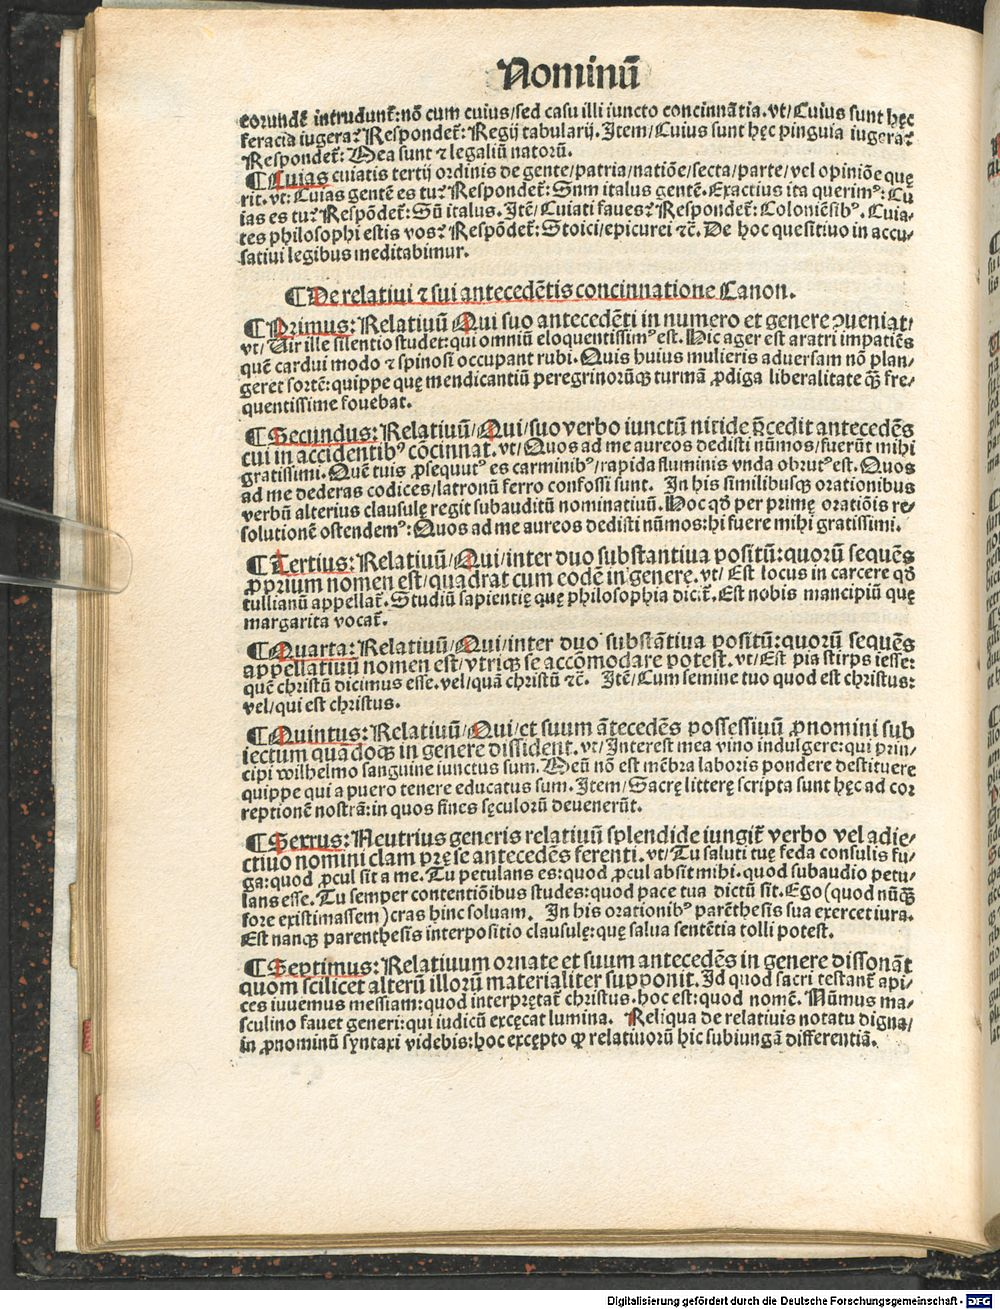 Nominū
eorundē intrudunt᷑: nō cum cuius/sed casu illi iuncto concinnātia. vt/Cuius sunt hęc
feracia iugera? Respondet᷑: Regij tabularij. Item/Cuius sunt hęc pinguia iugera?
Respondet᷑: Mea sunt ⁊ legaliū natorū.
¶ Cuias cuiatis tertij ordinis de gente/patria/natiōe/secta/parte/vel opiniōe quę
rit. vt: Cuias gentē es tu? Respondet᷑: Sum italus gentē. Exactius ita querimꝰ: Cu
ias es tu? Respōdet᷑: Sū italus. Itē/Cuiati faues? Respondet᷑: Coloniēsibꝰ. Cuia⸗
tes philosophi estis vos? Respōdet᷑: Stoici/epicurei ⁊c̄. De hoc quesitiuo in accu⸗
satiui legibus meditabimur.
¶ De relatiui ⁊ sui antecedētis concinnatione Canon.
¶ Primus: Relatiuū Qui suo antecedēti in numero et genere ꝯueniat/
vt/Uir ille silentio studet: qui omniū eloquentissimꝰ est. Hic ager est aratri impatiēs
quē cardui modo ⁊ spinosi occupant rubi. Quis huius mulieris aduersam nō plan⸗
geret sortē: quippe quę mendicantiū peregrinorūqꝫ turmā ꝓdiga liberalitate qꝫ̄ fre⸗
quentissime fouebat.
¶ Secundus: Relatiuū/Qui/suo verbo iunctū nitide p̄cedit antecedēs
cui in accidentibꝰ cōcinnat. vt/Quos ad me aureos dedisti nūmos/fuerūt mihi
gratissimi. Quē tuis ꝓsequutꝰ es carminibꝰ/rapida fluminis vnda obrutꝰ est. Quos
ad me dederas codices/latronū ferro confossi sunt. In his similibusqꝫ orationibus
verbū alterius clausulę regit subauditū nominatiuū. Hoc qd̄ per primę oratiōis re⸗
solutionē ostendemꝰ: Quos ad me aureos dedisti nūmos: hi fuere mihi gratissimi.
¶ Tertius: Relatiuū/Qui/inter duo substantiua positū: quorū sequēs
ꝓprium nomen est/quadrat cum eodē in genere. vt/Est locus in carcere qd̄
tullianū appellat᷑. Studiū sapientię quę philosophia dicit᷑. Est nobis mancipiū quę
margarita vocat᷑.
¶ Quarta: Relatiuū/Qui/inter duo substātiua positū: quorū sequēs
appellatiuū nomen est/vtriqꝫ se accōmodare potest. vt/Est pia stirps iesse:
quē christū dicimus esse. vel/quā christū ⁊c̄. Itē/Cum semine tuo quod est christus:
vel/qui est christus.
¶ Quintus: Relatiuū/Qui/et suum ātecedēs possessiuū ꝓnomini sub
iectum quādoqꝫ in genere dissident. vt/Interest mea vino indulgere: qui prin⸗
cipi wilhelmo sanguine iunctus sum. Meū nō est mēbra laboris pondere destituere
quippe qui a puero tenere educatus sum. Item/Sacrę litterę scripta sunt hęc ad cor
reptionē nostrā: in quos fines sęculorū deuenerūt.
¶ Sextus: Neutrius generis relatiuū splendide iungit᷑ verbo vel adie⸗
ctiuo nomini clam prę se antecedēs ferenti. vt/Tu saluti tuę feda consulis fu⸗
ga: quod ꝓcul sit a me. Tu petulans es: quod ꝓcul absit mihi. quod subaudio petu⸗
lans esse. Tu semper contentiōibus studes: quod pace tua dictū sit. Ego (quod nūqꝫ̄
fore existimassem) cras hinc soluam. In his orationibꝰ parēthesis sua exercet iura.
Est nanqꝫ parenthesis interpositio clausulę: quę salua sentētia tolli potest.
¶ Septimus: Relatiuum ornate et suum antecedēs in genere dissonāt
quom scilicet alterū illorū materialiter supponit. Id quod sacri testant᷑ api⸗
ces iuuemus messiam: quod interprętat᷑ christus. hoc est: quod nomē. Nūmus ma⸗
sculino fauet generi: qui iudicū excęcat lumina. Reliqua de relatiuis notatu digna/
in ꝓnominū syntaxi videbis: hoc excępto ꝙ relatiuorū hic subiungā differentiā.
Digitalisierung gefördert durch die Deutsche Forschungsgemeinschaft - DFG